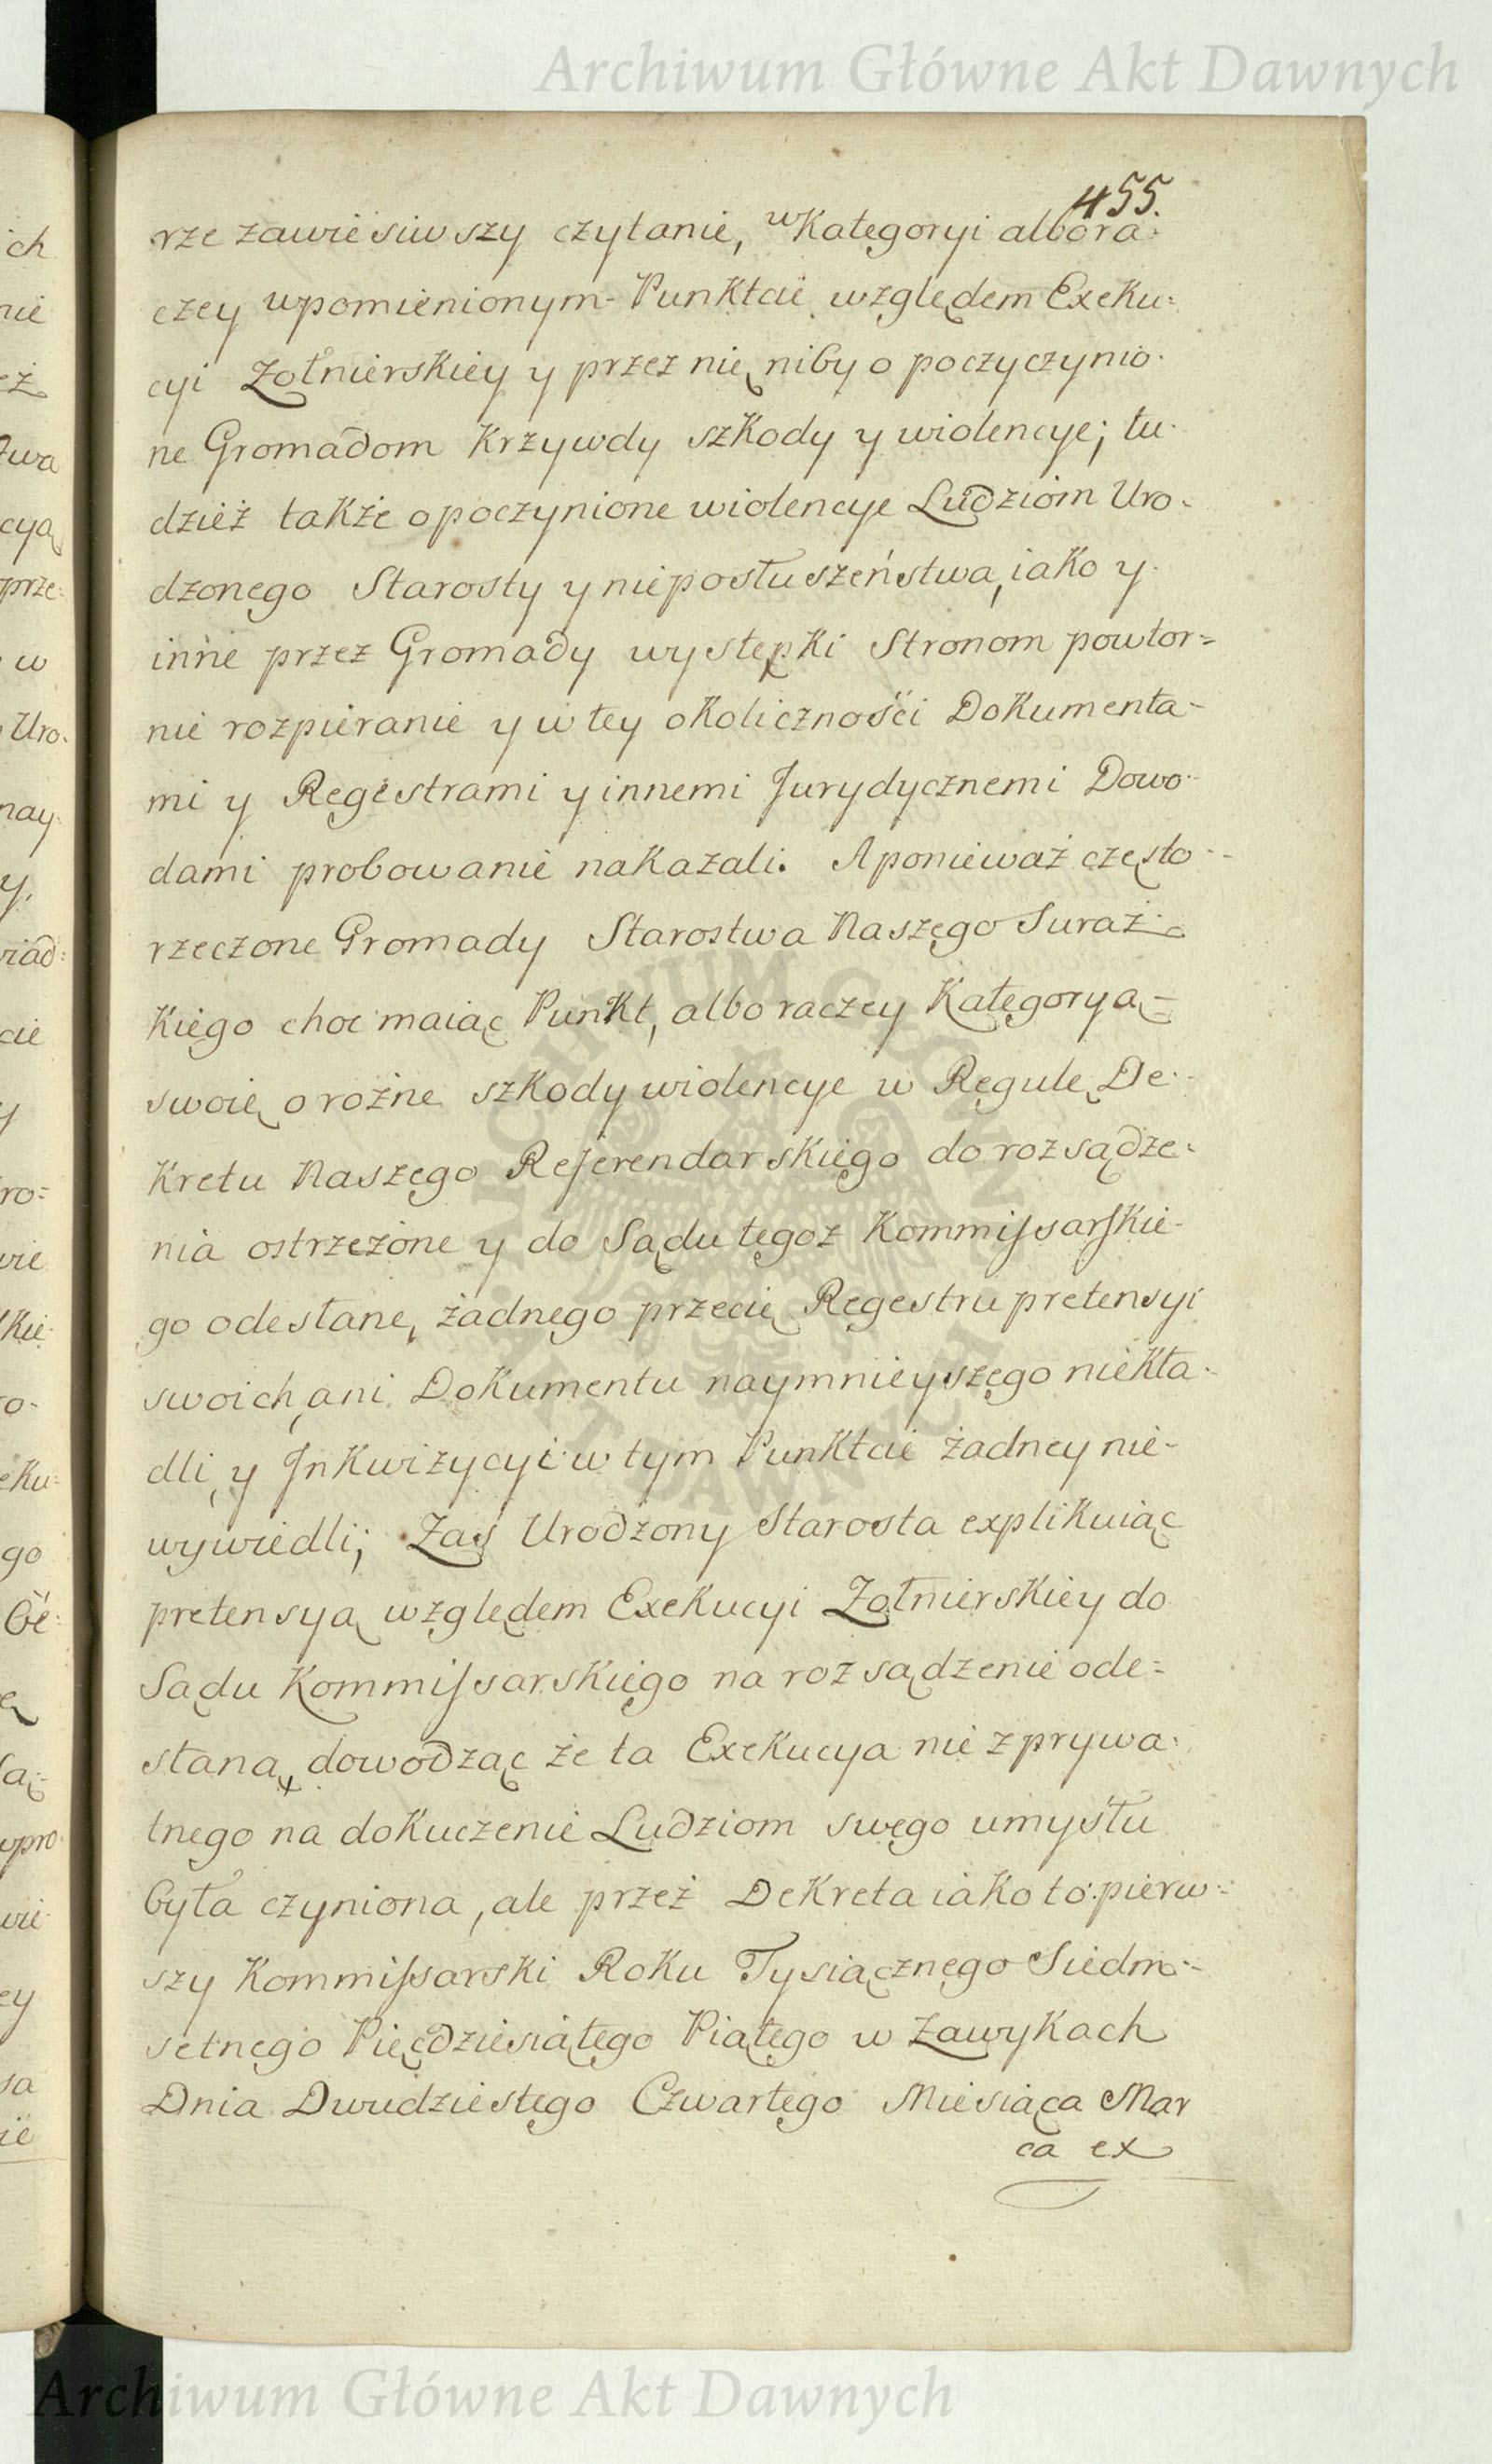 Archiwum Główne Akt Dawnych
455.
rze zawiesiwszy czytanie, w Kategoryi albo ra:
czey wpomienionym Punktcie względem Exeku:
cyi Zołnierskiey y przez nię niby o poczyczynio-
ne Gromadom Krzywdy szkody y wiolencye; tu-
dzież także o poczynione wiolencye Ludziom Uro-
dzonego Starosty y nieposłuszeństwa, iako y
inne przez Gromady występki Stronom powtor=
nie rozpieranie y w tey okoliczności Dokumenta-
mi y Regestrami y innemi Jurydycznemi Dowo-
dami probowanie nakazali. A ponieważ często-
rzeczone Gromady Starostwa Naszego Suraż-
kiego choc maiąc Punkt, albo raczey Kategoryą-
swoię o rożne szkody wiolencye w Regule De-
kretu Naszego Referendarskiego do rozsądze-
nia ostrzeżone y do Sądu tegoż Kommissarskie-
go odesłane, żadnego przecię Regestru pretensyi
swoich, ani Dokumentu naymnieyszego niekła-
dli, y Inkwizycyi w tym Punktcie żadney nie-
wywiedli; Zaś Urodzony Starosta explikuiąc
pretensyą względem Exekucyi Zołnierskiey do
Sądu Kommissarskiego na rozsądzenie ode=
słaną, dowodząc że ta Exekucya nie z prywa-
tnego na dokuczenie Ludziom swego umysłu
była czyniona, ale przez Dekreta iako to: pierw-
szy Kommissarski Roku Tysiącznego Siedm-
setnego Pięćdziesiątego Piątego w Zawykach
Dnia Dwudziestego Czwartego Miesiąca Mar
ca ex
Archiwum Główne Akt Dawnych